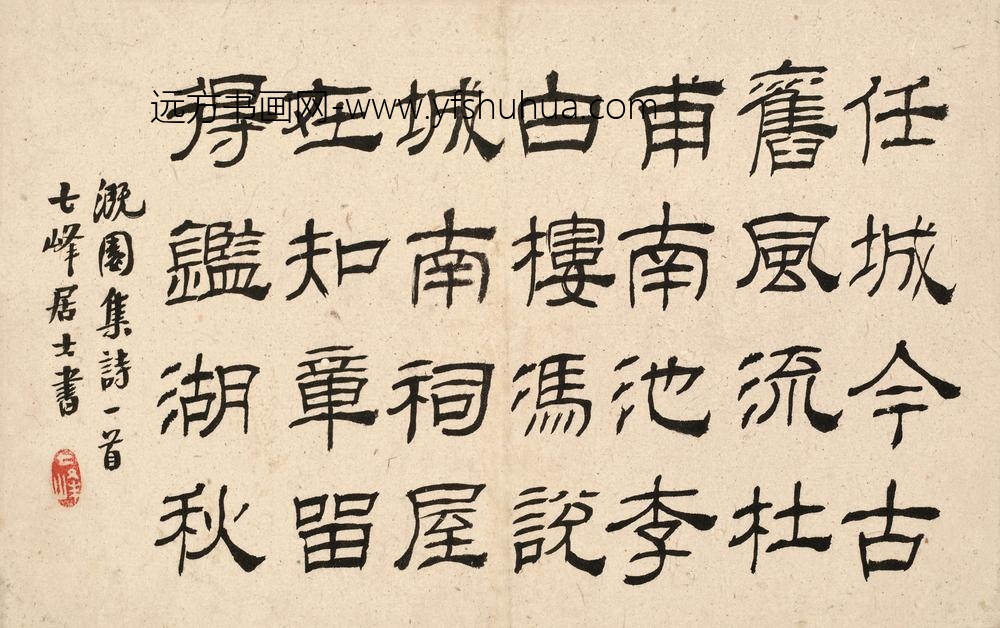 任城今古
舊風流杜
甫南池李
白樓馮說
城南祠屋
在知章留
得鑑湖秋
溉園集詩一首
七峰居士書
七峰
远方书画网-www.yfshuhua.com